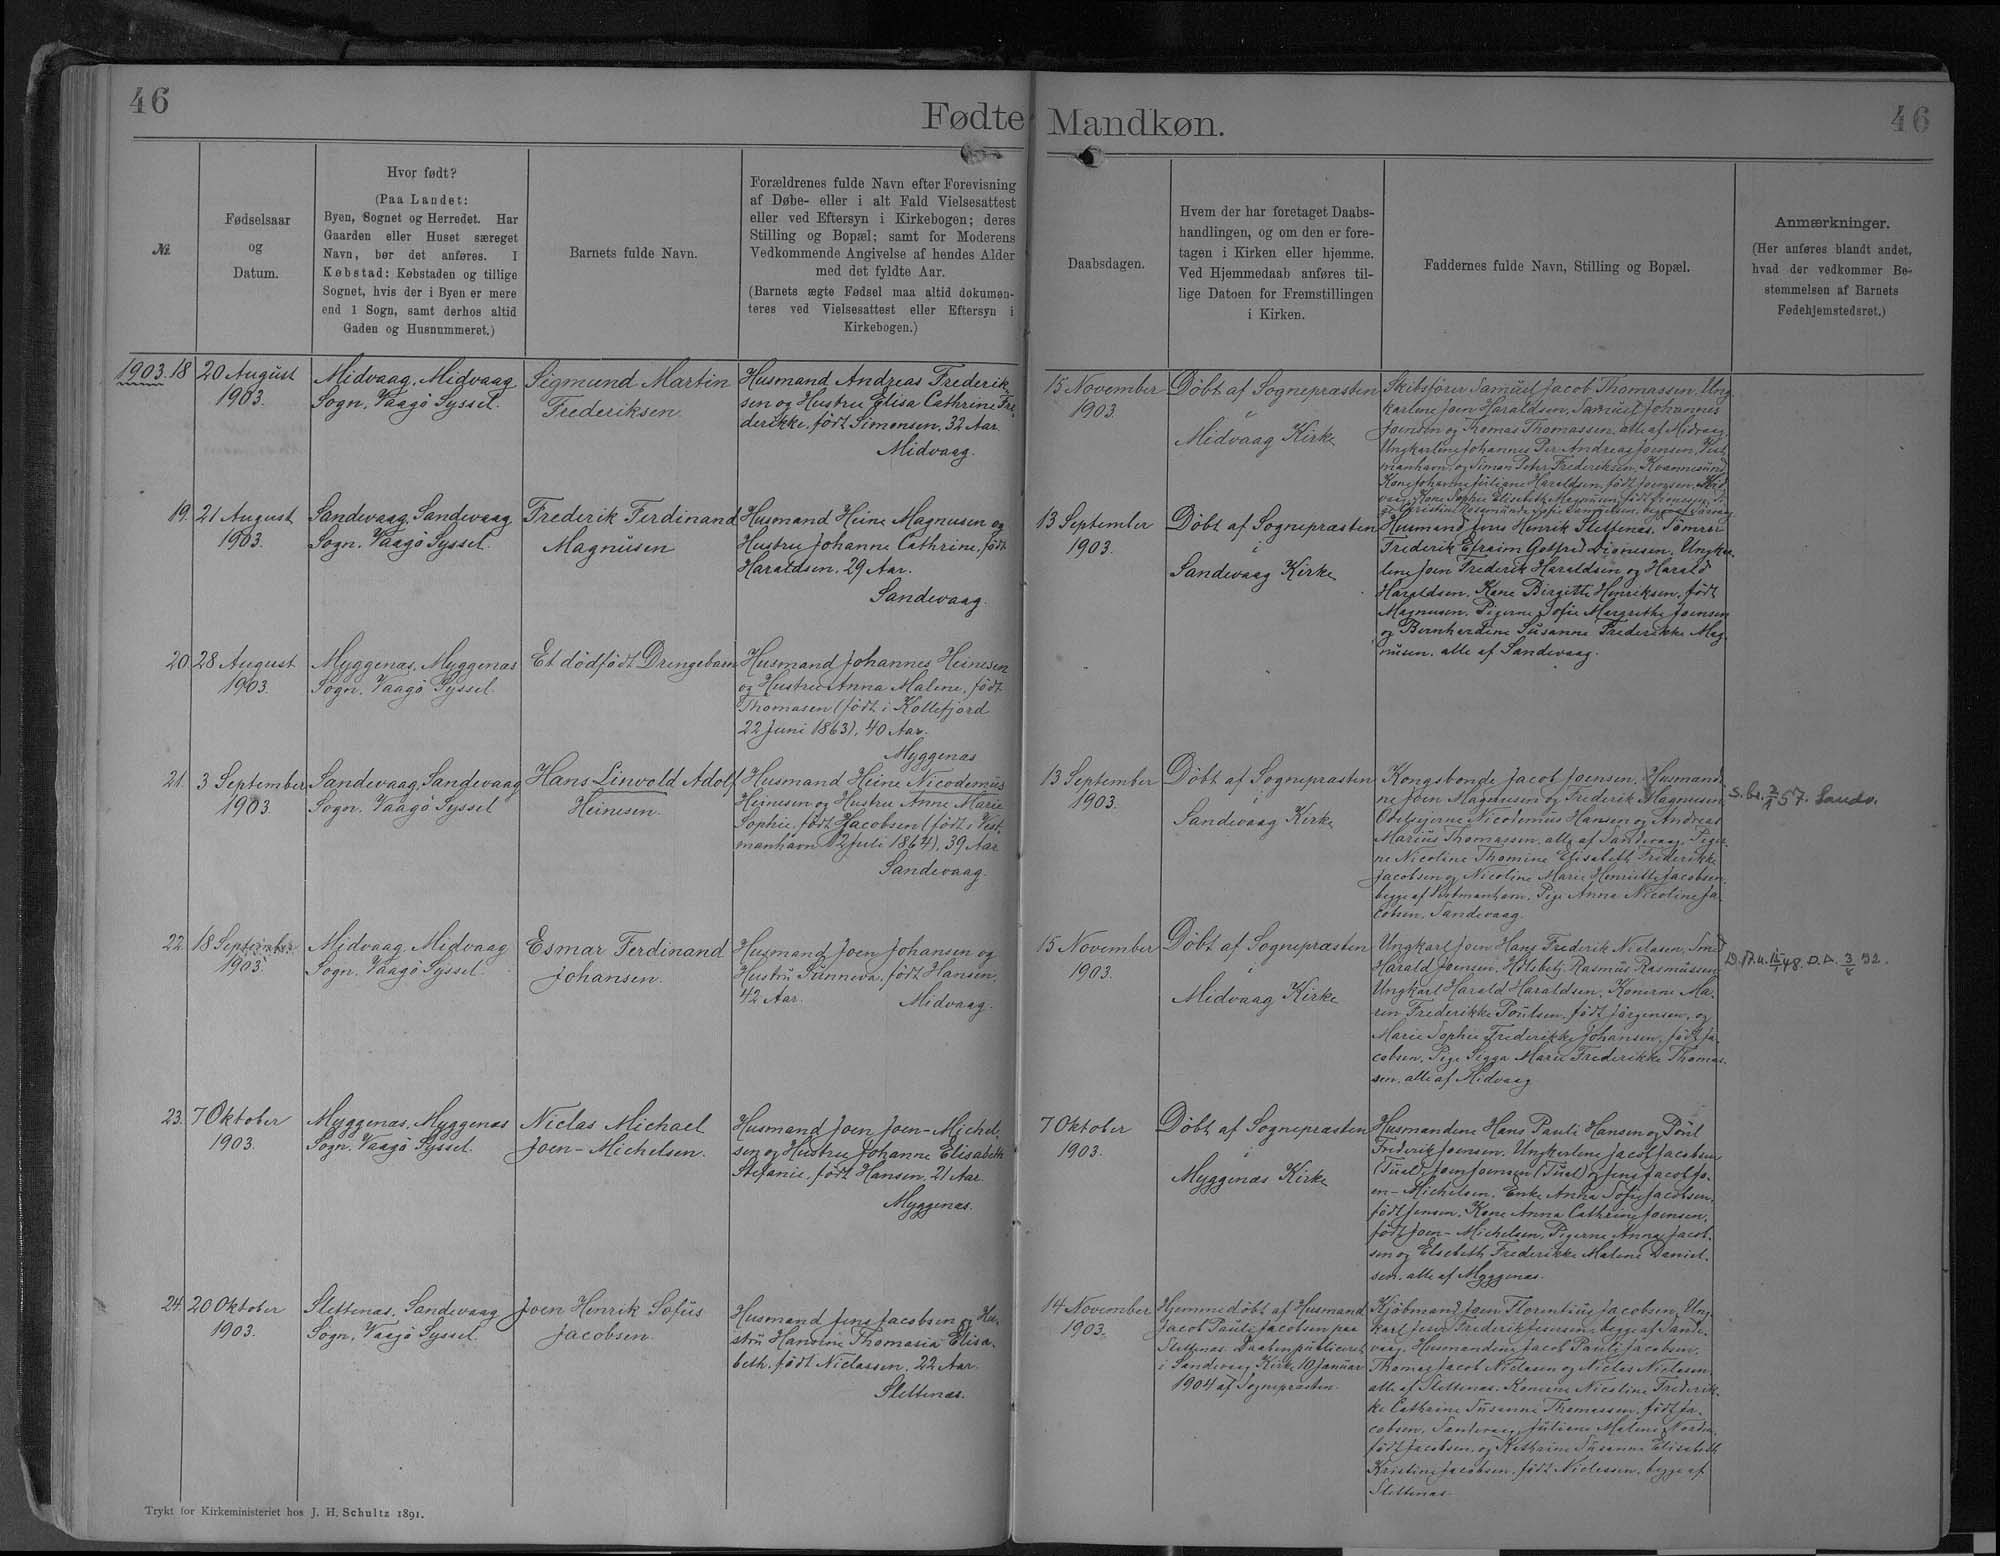 46
Fødte Mandkøn.
46
Nr.
Fødselsaar
og
Datum.
Hvor født?
(Paa Landet:
Byen, Sognet og Herredet. Har
Gaarden eller Huset særeget
Navn, bør det anføres. I
Købstad: Købstaden og tillige
Sognet, hvis der i Byen er mere
end 1 Sogn, samt derhos altid
Gaden og Husnummeret.)
Barnets fulde Navn.
Forældrenes fulde Navn efter Forevisning
af Døbe- eller i alt Fald Vielsesattest
eller ved Eftersyn i Kirkebogen; deres
Stilling og Bopæl; samt for Moderens
Vedkommende Angivelse af hendes Alder
med det fyldte Aar.
(Barnets ægte Fødsel maa altid dokumen-
teres ved Vielsesattest eller Eftersyn i
Kirkebogen.)
Daabsdagen.
Hvem der har foretaget Daabs-
handlingen, og om den er fore-
tagen i Kirken eller hjemme.
Ved Hjemmedaab anføres til-
lige Datoen for Fremstillingen
i Kirken.
Faddernes fulde Navn, Stilling og Bopæl.
Anmærkninger.
(Her anføres blandt andet,
hvad der vedkommer Be-
stemmelsen af Barnets
Fødehjemstedsret.)
1903. 18
20 August
1903.
Midvaag, Midvaag
Sogn, Vaagö Syssel.
Sigmund Martin
Frederiksen.
Husmand Andreas Frederik
sen og Hustru Elisa Cathrine Fre-
derikke, födt Simonsen, 32 Aar
Midvaag.
15 November
1903.
Döbt af Sognepræsten
i
Midvaag Kirke
Skibsförer Samuel Jacob Thomassen, Ung
karlene Joen Haraldsen, Samuel Johannes
Joensen og Thomas Thomassen, alle af Midvaag,
Ungkarlene Johannes Per Andreas Joensen, Vest
manhavn, og Simon Peter Frederiksen, Kvannesund,
Kone Johanne Juliane Haraldsen, födt Joensen, Mid
vaag, Kone Sophie Elisabeth Magnusen, födt
og Christine Rosamunde Sofie
19.
21 August
1903.
Sandevaag, Sandevaag
Sogn, Vaagö Syssel.
Frederik Ferdinand
Magnusen
Husmand Heine Magnusen og
Hustru Johanne Cathrine, födt
Haraldsen, 29 Aar.
Sandevaag.
13 September
1903.
Döbt af Sognepræsten
i
Sandevaag Kirke
Husmand Joens Henrik Slettenæs, Tömrer
Frederik Efraim Gotfred Dionesen, Ungkar-
lene Joen Frederik Haraldsen og Harald
Haraldsen, Kone Birgitte Henriksen, födt
Magnusen, Pigerne Sofie Margrethe Joensen
og Bernhardine Susanne Frederikke Mag
nusen, alle af Sandevaag.
20
28 August
1903.
Myggenæs, Myggenæs
Sogn, Vaagö Syssel.
Et dödfödt Drengebarn
Husmand Johannes Heinesen
og Hustru Anna Malene, födt
Thomasen (födt i Kollefjord
22 Juni 1863), 40 Aar.
Myggenæs
21.
3 September
1903.
Sandevaag, Sandevaag
Sogn, Vaagö Syssel
Hans Linvold Adolf
Heinesen.
Husmand Heine Nicodemus
Heinesen og Hustru Anne Marie
Sophie, födt Jacobsen (födt i Vest
manhavn 12 Juli 1864), 39 Aar
Sandevaag.
13 September
1903.
Döbt af Sognepræsten
i
Sandevaag Kirke
Kongsbonde Jacob Joensen, Husmænd
ne Joen Magnusen og Frederik Magnusen
Odelsejerne Nicodemus Hansen og Andreas
Marius Thomassen, alle af Sandevaag, Piger
ne Nicoline Thomine Elisabeth Frederikke
Jacobsen og Nicoline Marie Henriette Jacobsen
begge af Vestmanhavn, Pige Anna Nicoline Ja
cobsen, Sandevaag.
57. Sandv.
22.
18 September
1903.
Midvaag, Midvaag
Sogn, Vaagö Syssel.
Esmar Ferdinand
Johansen.
Husmand Joen Johansen og
Hustru Sunneva, födt Hansen,
42 Aar. Midvaag.
15 November
1903.
Döbt af Sognepræsten
i
Midvaag Kirke
Ungkarl Joen Hans Frederik Niclasen, Smed
Harald Joensen, Rasmus Rasmussen
Ungkarl Harald Haraldsen, Konerne Ma-
ren Frederikke Poulsen, födt Jörgensen, og
Marie Sophie Frederikke Johansen, födt Ja-
cobsen, Pige Sigga Marie Frederikke Thomas-
sen, alle af Midvaag
23.
7 Oktober
1903.
Myggenæs, Myggenæs
Sogn, Vaagö Syssel.
Niclas Michael
Joen-Michelsen.
Husmand Joen Joen-Michel-
sen og Hustru Johanne Elisabeth
Stefanie, födt Hansen, 21 Aar.
Myggenæs.
7 Oktober
1903.
Döbt af Sognepræsten
i
Myggenæs Kirke
Husmændene Hans Pauli Hansen og Poul
Frederik Joensen, Ungkarlene Jacob Jacobsen
Joen Joensen og Jens Jacob Jo-
en-Michelsen, Enke Anna Sofie Jacobsen,
födt Jensen, Kone Anna Cathrine Joensen,
födt Joen-Michelsen, Pigerne Anna Jacob-
sen og Elsebeth Frederikke Malene Daniel-
sen, alle af Myggenæs.
24.
20 Oktober
1903.
Slettenæs, Sandevaag
Sogn, Vaagö Syssel
Joen Henrik Sofus
Jacobsen.
Husmand Jens Jacobsen og Hu-
stru Hansine Thomasia Elisa-
beth, födt Niclassen, 22 Aar.
Slettenæs.
14 November
1903.
Hjemmedöbt af Husmand
Jacob Pauli Jacobsen paa
Slettenæs. Daaben publiceret
i Sandevaag Kirke 10 Januar
1904 af Sognepræsten.
Kjöbmand Joen Florentius Jacobsen, Ung-
karl Jens Frederik Jensen, begge af Sande-
vaag, Husmændene Jacob Pauli Jacobsen,
Thomas Jacob Niclasen og Niclas Niclasen
alle af Slettenæs, Konerne Nicoline Frederik-
ke Cathrine Susanne Thomassen, födt Ja-
cobsen, Sandevaag, Juliane Malene
födt Jacobsen, og Kathrine Susanne Elisabeth
Kristine Jacobsen, födt Niclassen, begge af
Slettenæs
Trykt for Kirkeministeriet hos J. H. Schultz 1891.